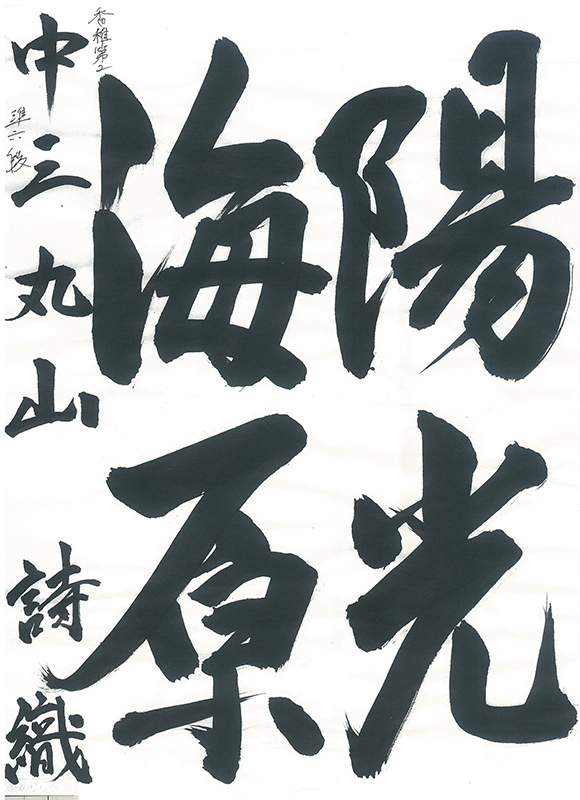 陽光
海原
香椎第2
準六段
中三丸山詩織